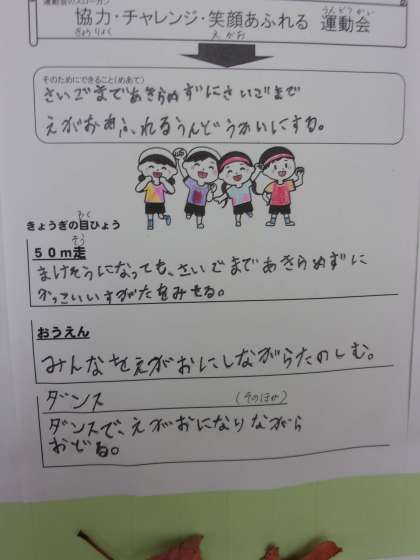 運動会のスローガン
協力・チャレンジ・笑顔あふれる 運動会
きょうりょく えがお うんどうかい
そのためにできること(めあて)
さいごまであきらめずにさいごまで
えがおあふれるうんどうかいにする。
きょうぎの目ひょう
もく
50m走
そう
まけそうになっても、さいごまであきらめずに
かっこいいすがたをみせる。
おうえん
みんなをえがおにしながらたのしむ。
ダンス (そのほか)
ダンスで、えがおになりながら
おどる。